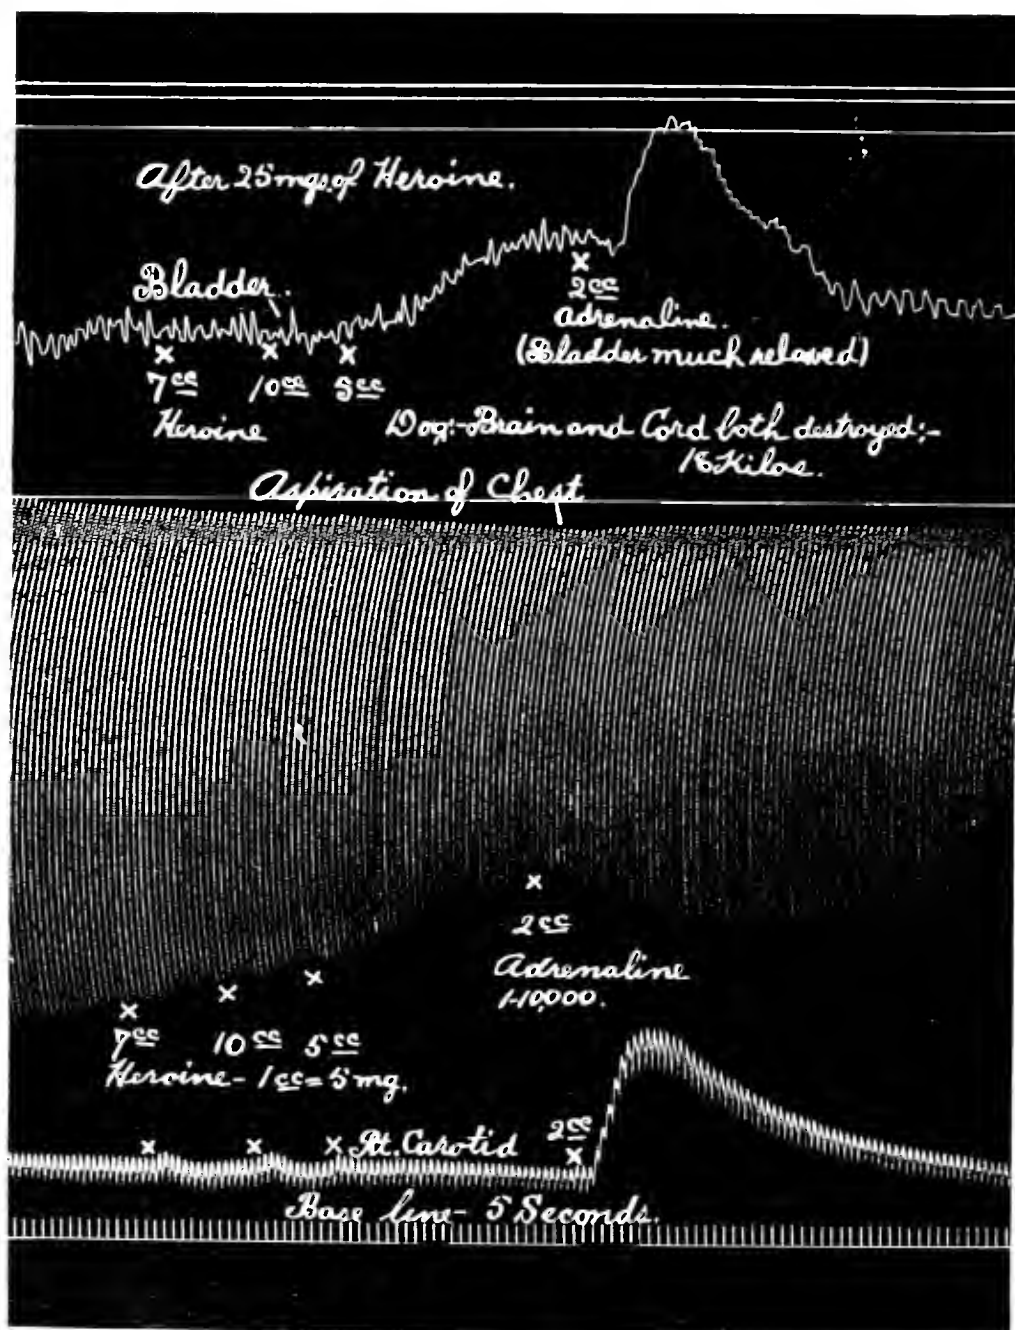 After 25 mgs. of Heroine.
Bladder.
7cc 10cc 5cc
Heroine
2cc
Adrenaline.
(Bladder much relaxed)
Dog:- Brain and Cord both destroyed:-
18 Kilos.
Aspiration of Chest
2cc
Adrenaline
1-10,000.
7cc 10cc 5cc
Heroine - 1cc = 5 mg.
Rt. Carotid 2cc
Base line - 5 Seconds.